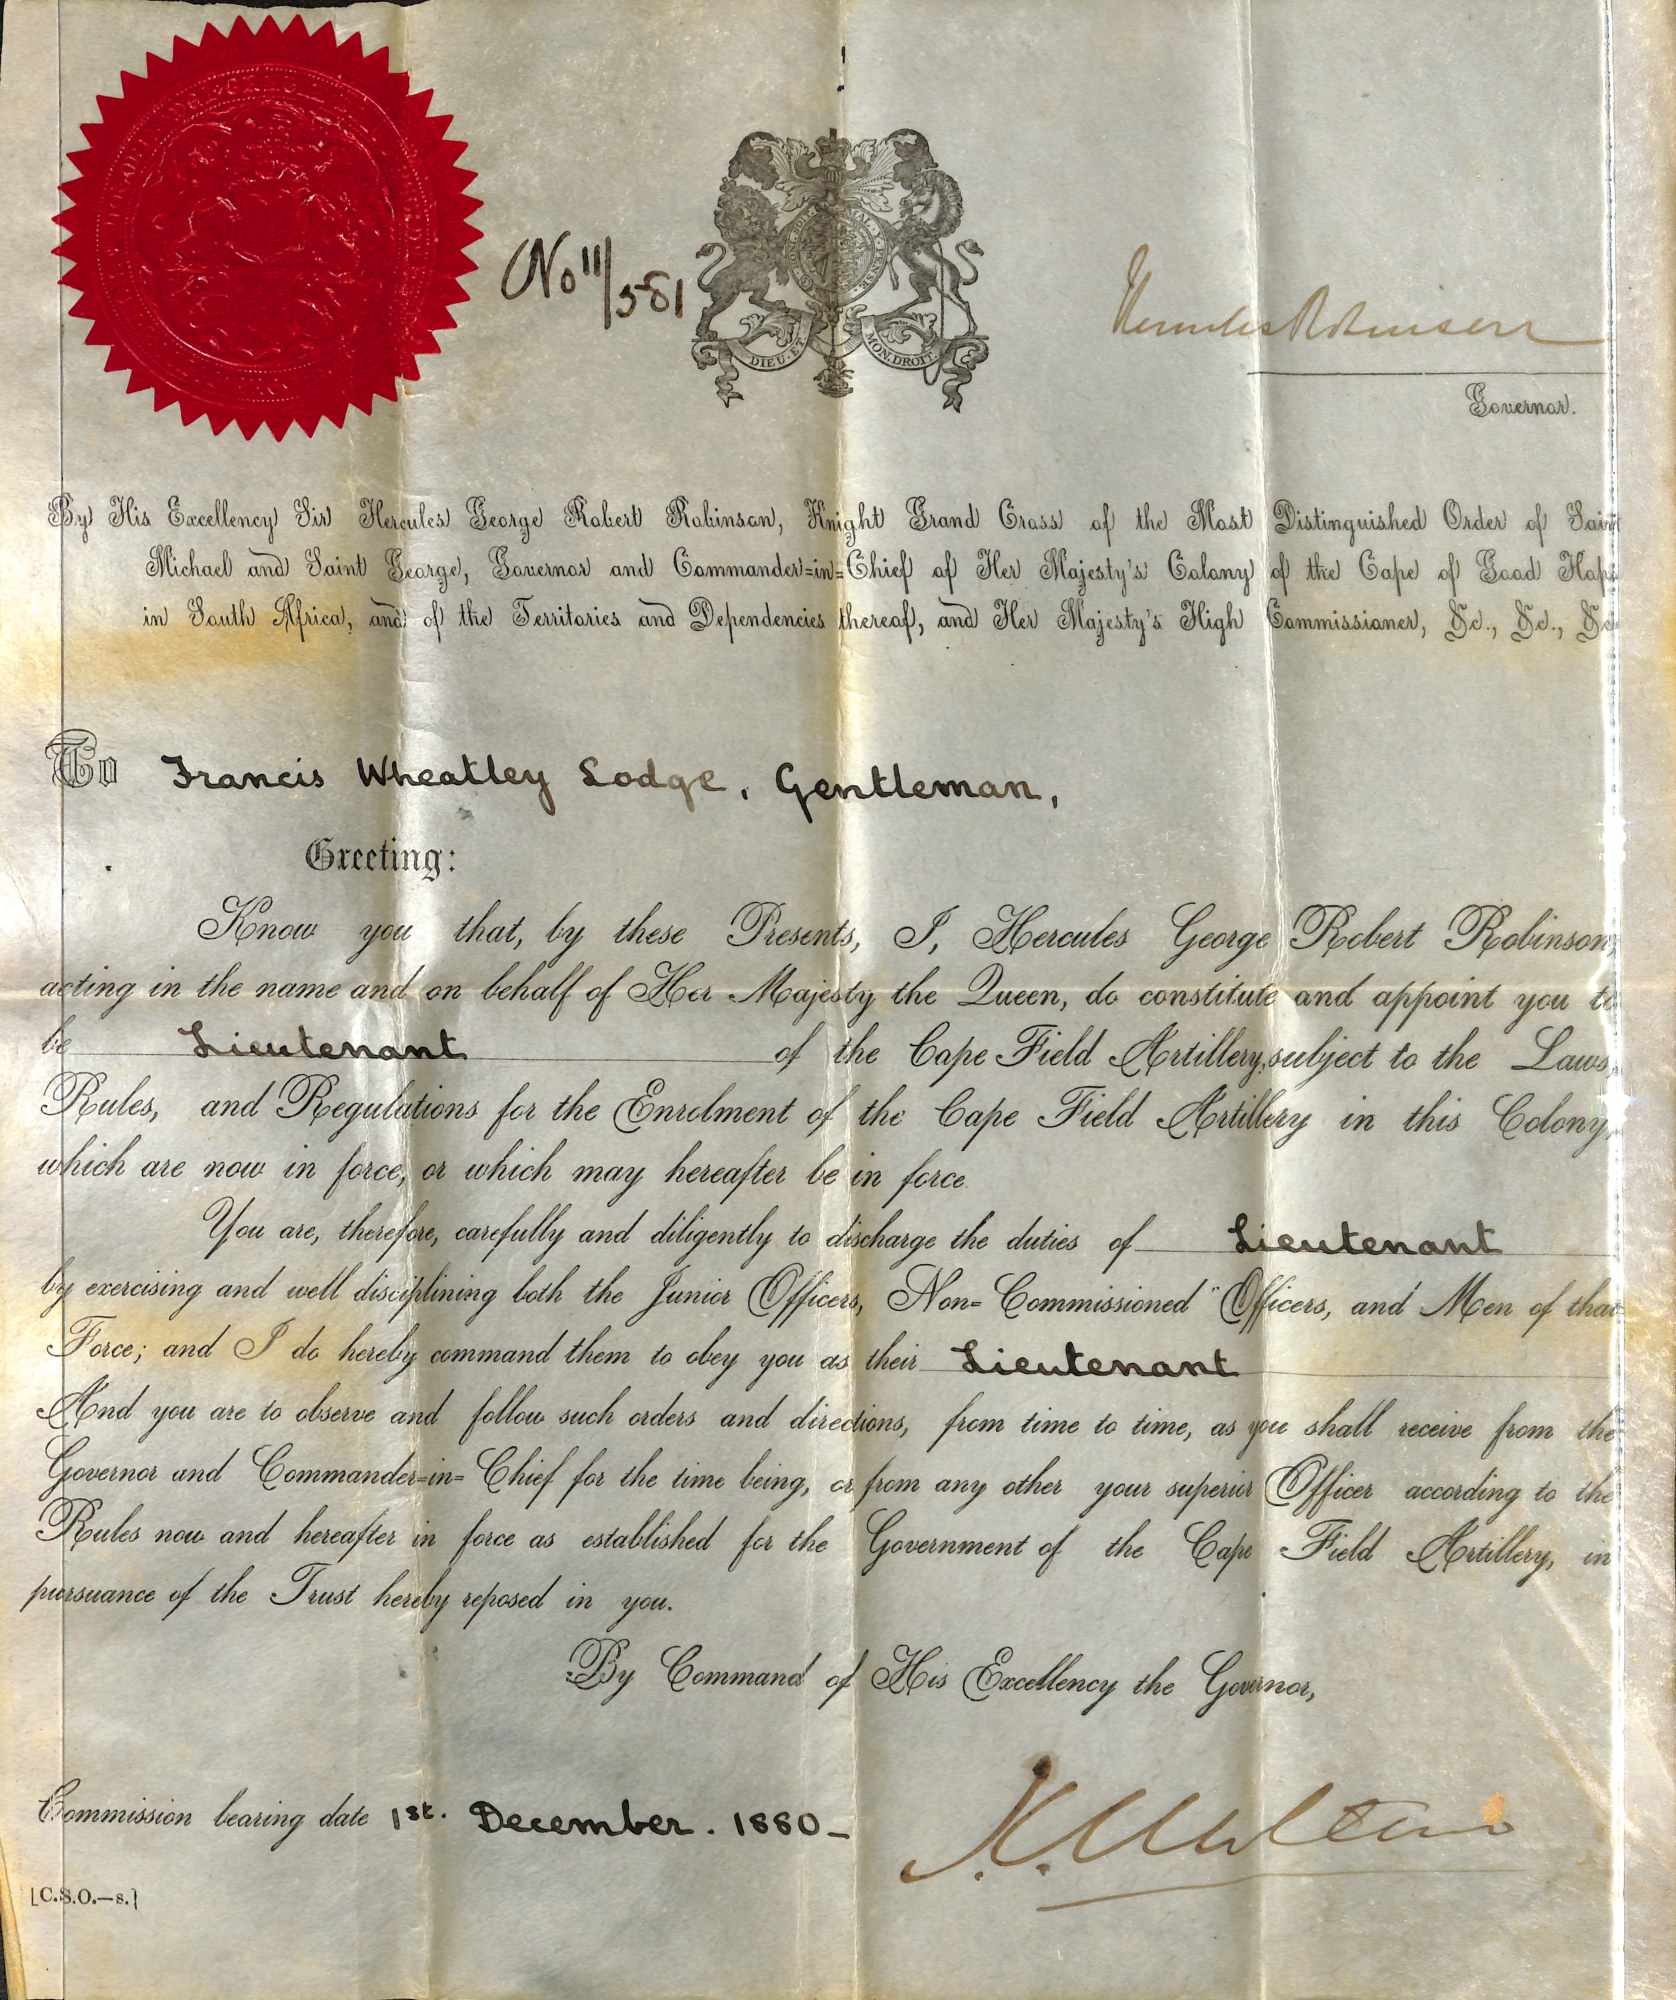 No 111/581
DIEU·ET MON·DROIT
Hercules Robinson
Governor.
By His Excellency Sir Hercules George Robert Robinson, Knight Grand Cross of the Most Distinguished Order of Saint
Michael and Saint George, Governor and Commander=in=Chief of Her Majesty's Colony of the Cape of Good Hope
in South Africa, and of the Territories and Dependencies thereof, and Her Majesty's High Commissioner, &c., &c., &c.
To Francis Wheatley Lodge, Gentleman,
Greeting:
Know you that, by these Presents, I, Hercules George Robert Robinson,
acting in the name and on behalf of Her Majesty the Queen, do constitute and appoint you to
be Lieutenant of the Cape Field Artillery, subject to the Laws,
Rules, and Regulations for the Enrolment of the Cape Field Artillery in this Colony,
which are now in force, or which may hereafter be in force
You are, therefore, carefully and diligently to discharge the duties of Lieutenant
by exercising and well disciplining both the Junior Officers, Non=Commissioned Officers, and Men of that
Force; and I do hereby command them to obey you as their Lieutenant
And you are to observe and follow such orders and directions, from time to time, as you shall receive from the
Governor and Commander=in=Chief for the time being, or from any other your superior Officer according to the
Rules now and hereafter in force as established for the Government of the Cape Field Artillery, in
pursuance of the Trust hereby reposed in you.
By Command of His Excellency the Governor,
Commission bearing date 1st. December. 1880-
[C.S.O.—s.]